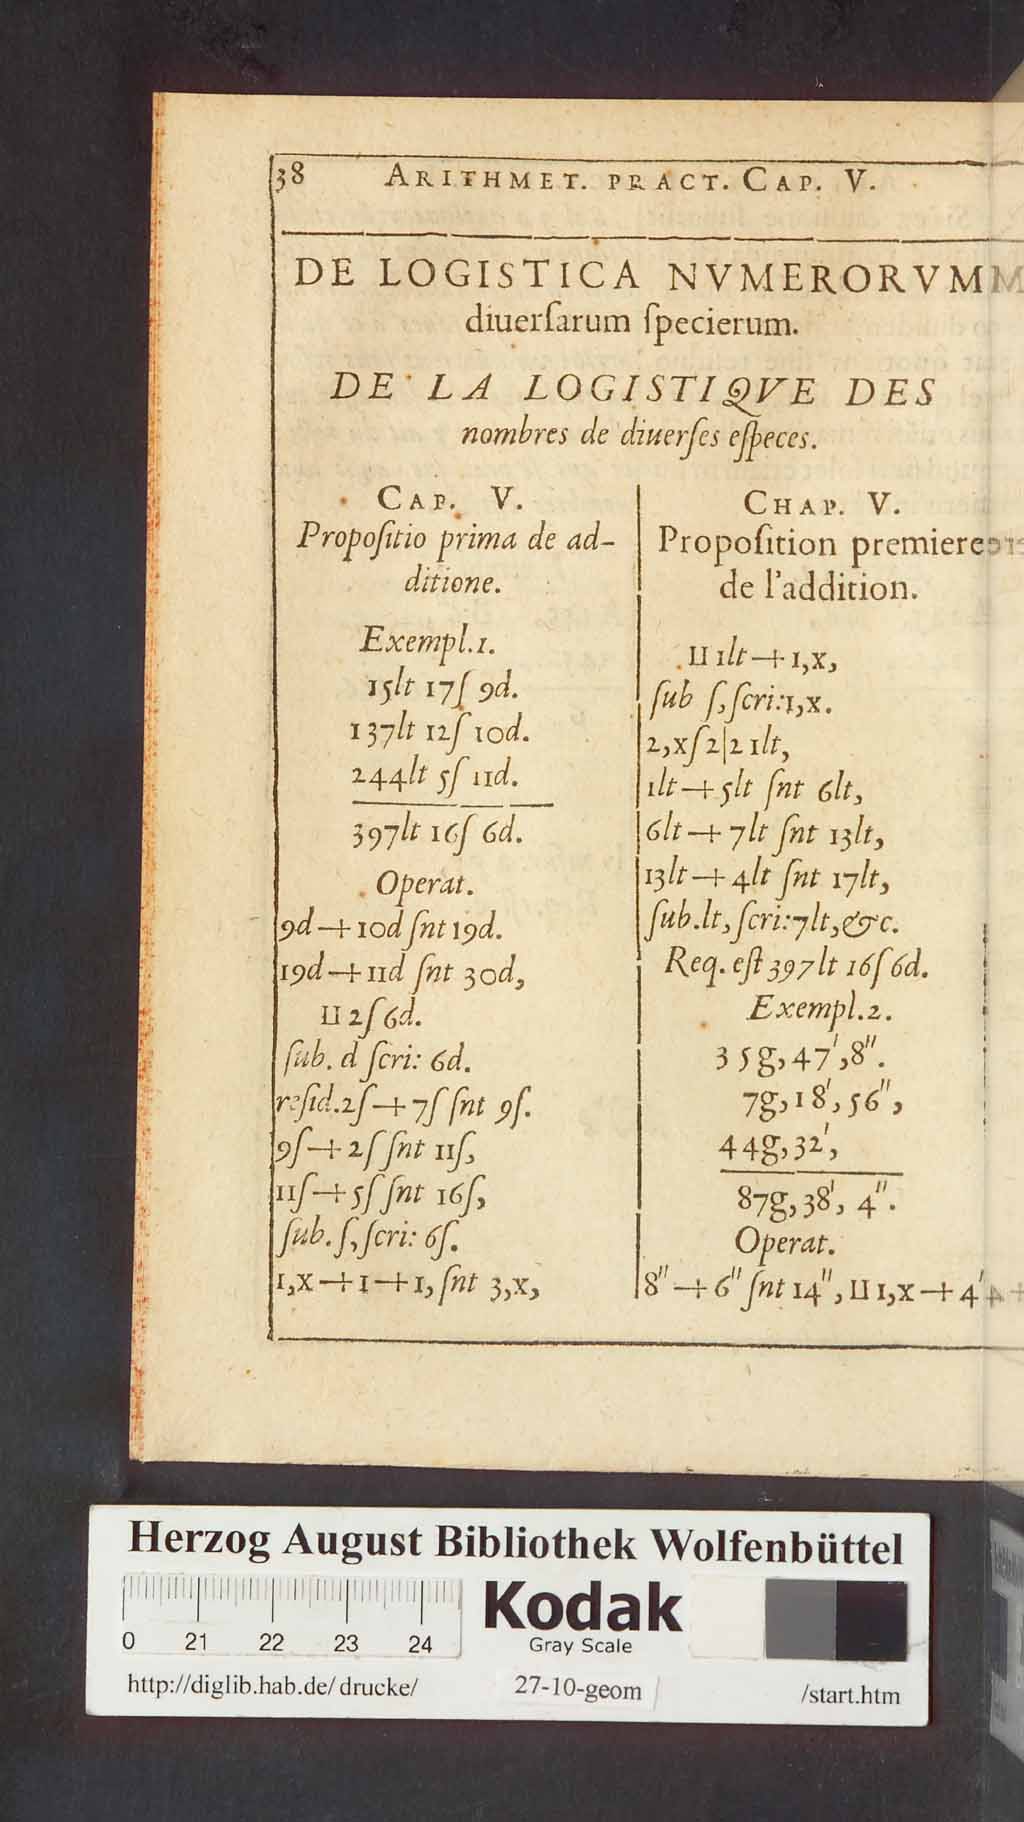 38 ARITHMET. PRACT. CAP. V.
DE LOGISTICA NVMERORVM
diuerſarum ſpecierum.
DE LA LOGISTIQVE DES
nombres de diuerſes eſpeces.
CAP. V.
Propoſitio prima de ad-
ditione.
Exempl.1.
15lt 17ſ 9d.
137lt 12ſ 10d.
244lt 5ſ 11d.
397lt 16ſ 6d.
Operat.
9d + 10d ſnt 19d.
19d + 11d ſnt 30d,
II 2ſ 6d.
ſub. d ſcri: 6d.
reſid. 2ſ + 7ſ ſnt 9ſ.
9ſ + 2ſ ſnt 11ſ,
11ſ + 5ſ ſnt 16ſ,
ſub. ſ, ſcri: 6ſ.
1,x + 1 + 1, ſnt 3,x,
CHAP. V.
Propoſition premiere
de l'addition.
II 1lt + 1,x,
ſub ſ, ſcri: 1,x.
2,xſ 2|2 1lt,
1lt + 5lt ſnt 6lt,
6lt + 7lt ſnt 13lt,
13lt + 4lt ſnt 17lt,
ſub. lt, ſcri: 7lt, &c.
Req. eſt 397lt 16ſ 6d.
Exempl.2.
35g, 47', 8''.
7g, 18', 56'',
44g, 32',
87g, 38', 4''.
Operat.
8'' + 6'' ſnt 14'', II 1,x + 4'
Herzog August Bibliothek Wolfenbüttel
0 21 22 23 24
Kodak
Gray Scale
http://diglib.hab.de/drucke/ 27-10-geom /start.htm